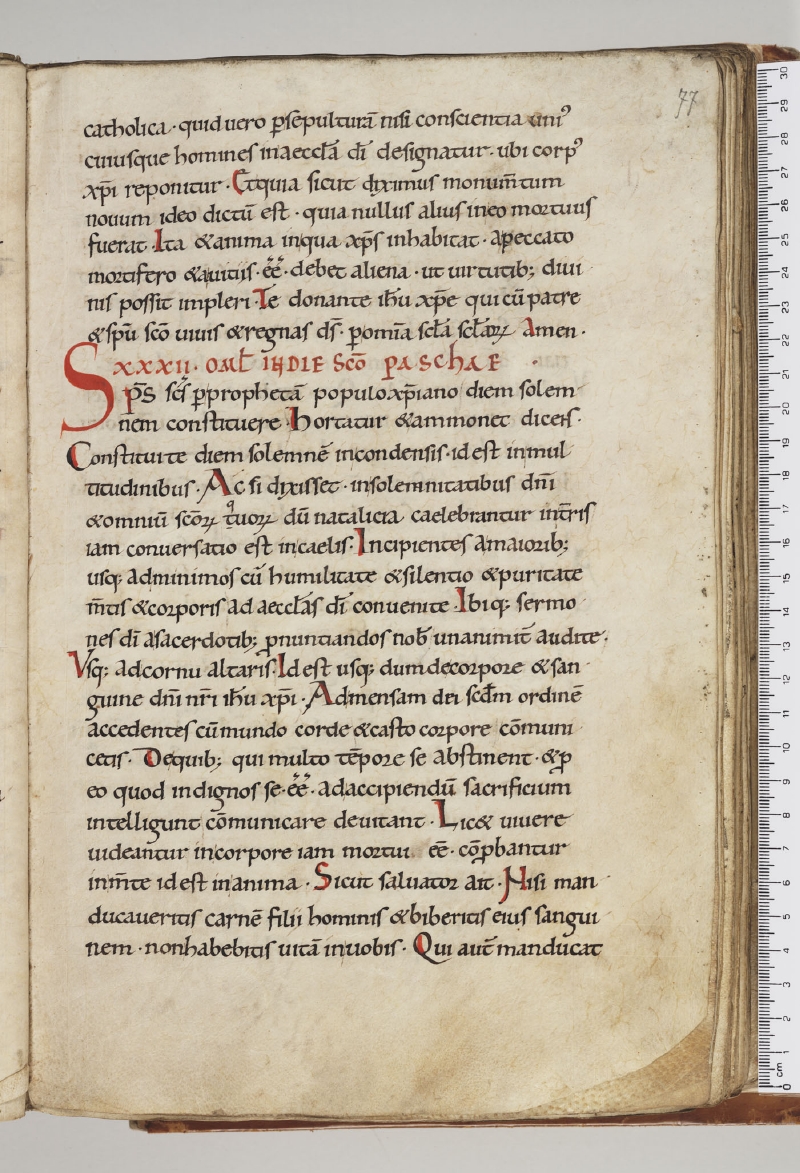 77
catholica · quid uero ꝑ sepulturā nisi conscientia uni᾿
cuiusque homines in aeccl̄a dī designatur · ubi corp᾿
xp̄i reponitur · Et quia sicut diximus monum̄tum
nouum ideo dictū est · quia nullus alius in eo mortuus
fuerat · Ita & anima in qua xp̄s inhabitat · a peccato
mortifero & a uitiis · ēē · debet aliena · ut uirtutib; diui
nis possit impleri · Te donante ih̄u xp̄e qui cū patre
& sp̄u scō uiuis & regnas ds̄ · ꝑ om̄ia scl̄a scl̄oꝝ Amen ·
XXXII · OML̄ IN DIE SCŌ PASCHAE ·
Sp̄s sc̄s ꝑ prophetā populo xp̄iano diem solem
nem constituere · Hortatur & ammonet dicens ·
Constituite diem solemnē in condensis · id est in mul
titudinibus · Ac si dixisset · in solemnitatibus dn̄i
& omniū scōꝝ tuoꝝ dū natalicia caelebrantur in t̄ris
iam conuersatio est in caelis · Incipientes a maiorib;
usq; ad minimos cū humilitate & silentio & puritate
m̄tis & corporis ad aeccl̄as dī conuenite · Ibiq; sermo
nes dī a sacerdotib; ꝓnuntiandos nob̄ unanimit̄ audite ·
Vsq; ad cornu altaris · Id est usq; dum de corpore & san
guine dn̄i nr̄i ih̄u xp̄i · Ad mensam dei scd̄m ordinē
accedentes cū mundo corde & casto corpore cōmuni
cetis · De quib; qui multo tēpore se abstinent · & ꝑ
eo quod indignos se · ēē · ad accipiendū sacrificium
intelligunt cōmunicare deuitant · Lic& uiuere
uideantur in corpore iam mortui ēē · cōꝓbantur
in m̄te id est in anima · Sicut saluator ait · Nisi man
ducaueritis carnē filii hominis & biberitis eius sangui
nem · non habebitis uitā in uobis · Qui aut̄ manducat
0 cm 1 2 3 4 5 6 7 8 9 10 11 12 13 14 15 16 17 18 19 20 21 22 23 24 25 26 27 28 29 30